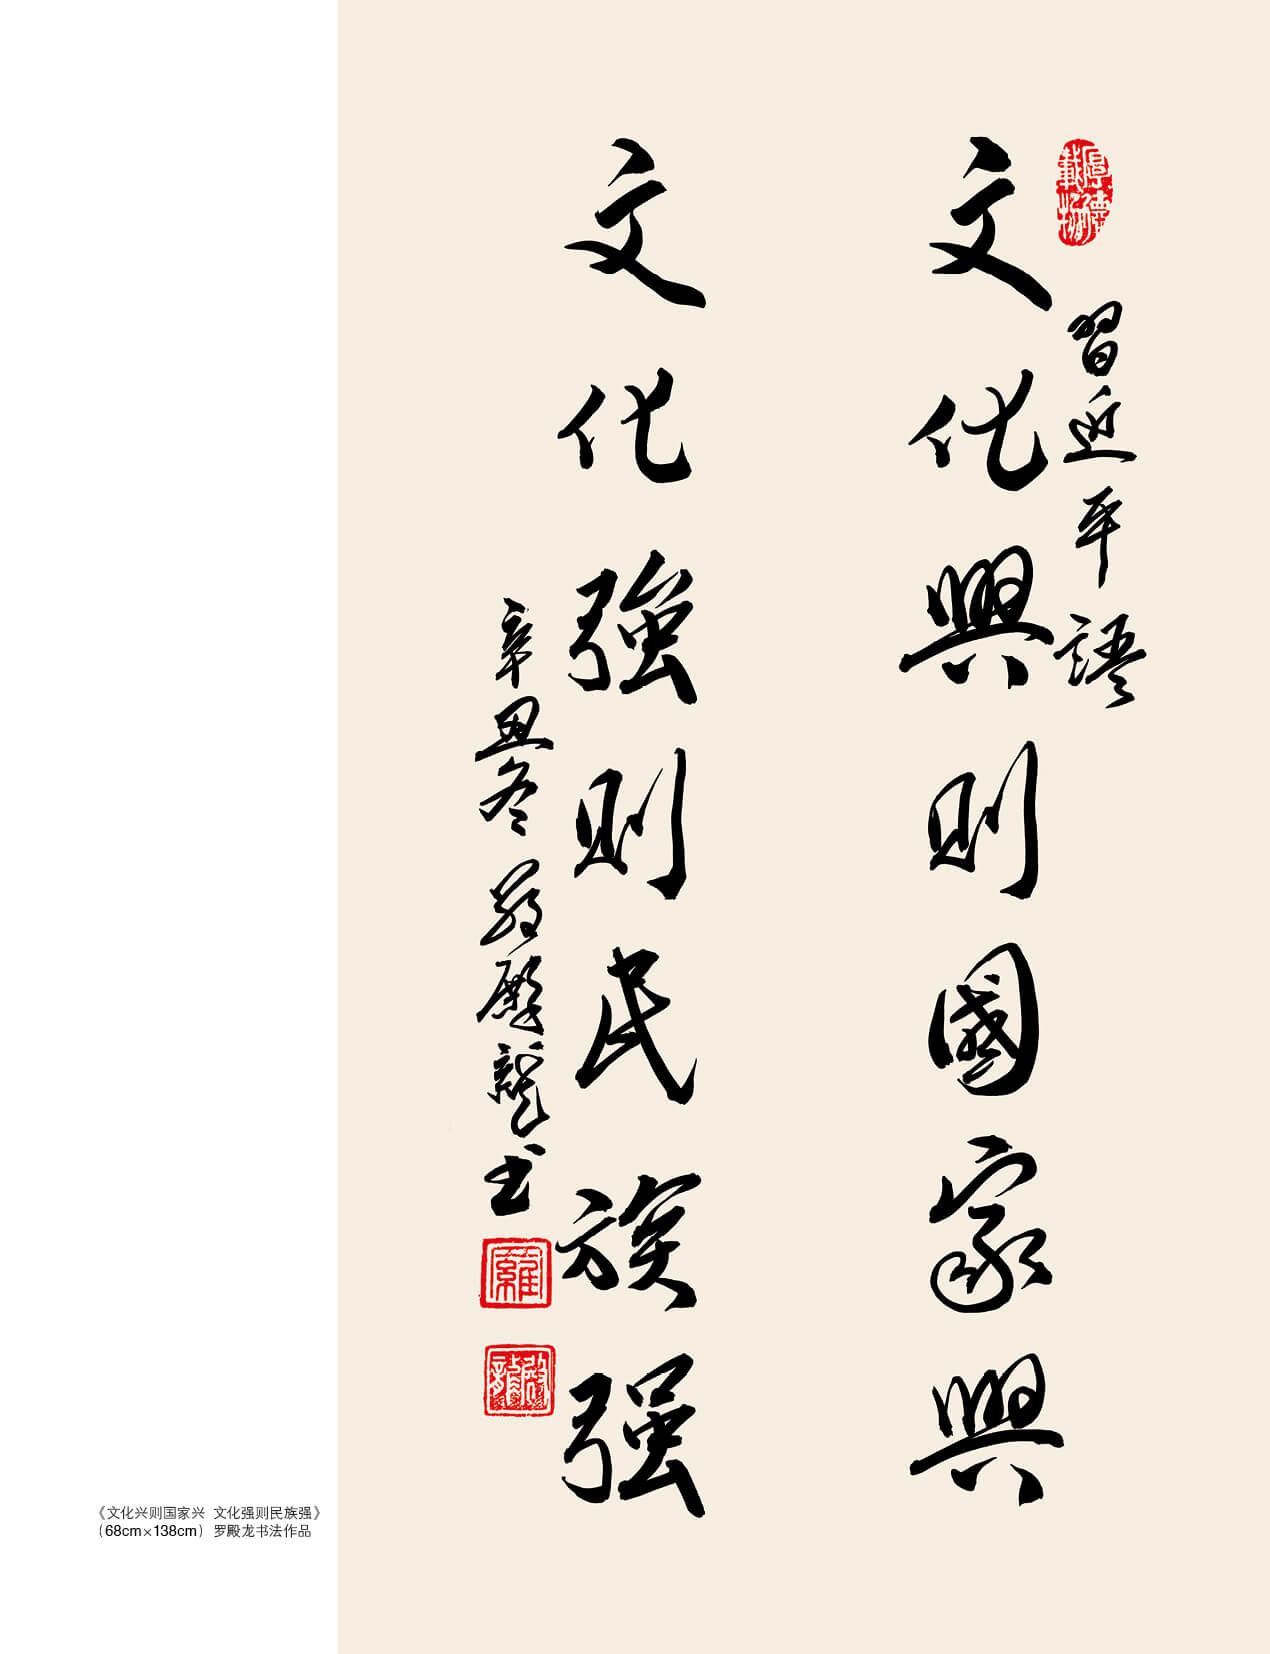 厚德載物
習近平語
文化興則國家興
文化強則民族强
辛丑冬 羅殿龍书
羅
殿龍
《文化兴则国家兴 文化强则民族强》
(68cm×138cm) 罗殿龙书法作品